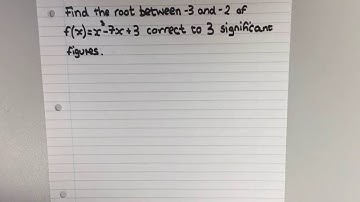 Find the root between -3 and -2 of
f(x)=x³-7x+3 correct to 3 significant
figures.